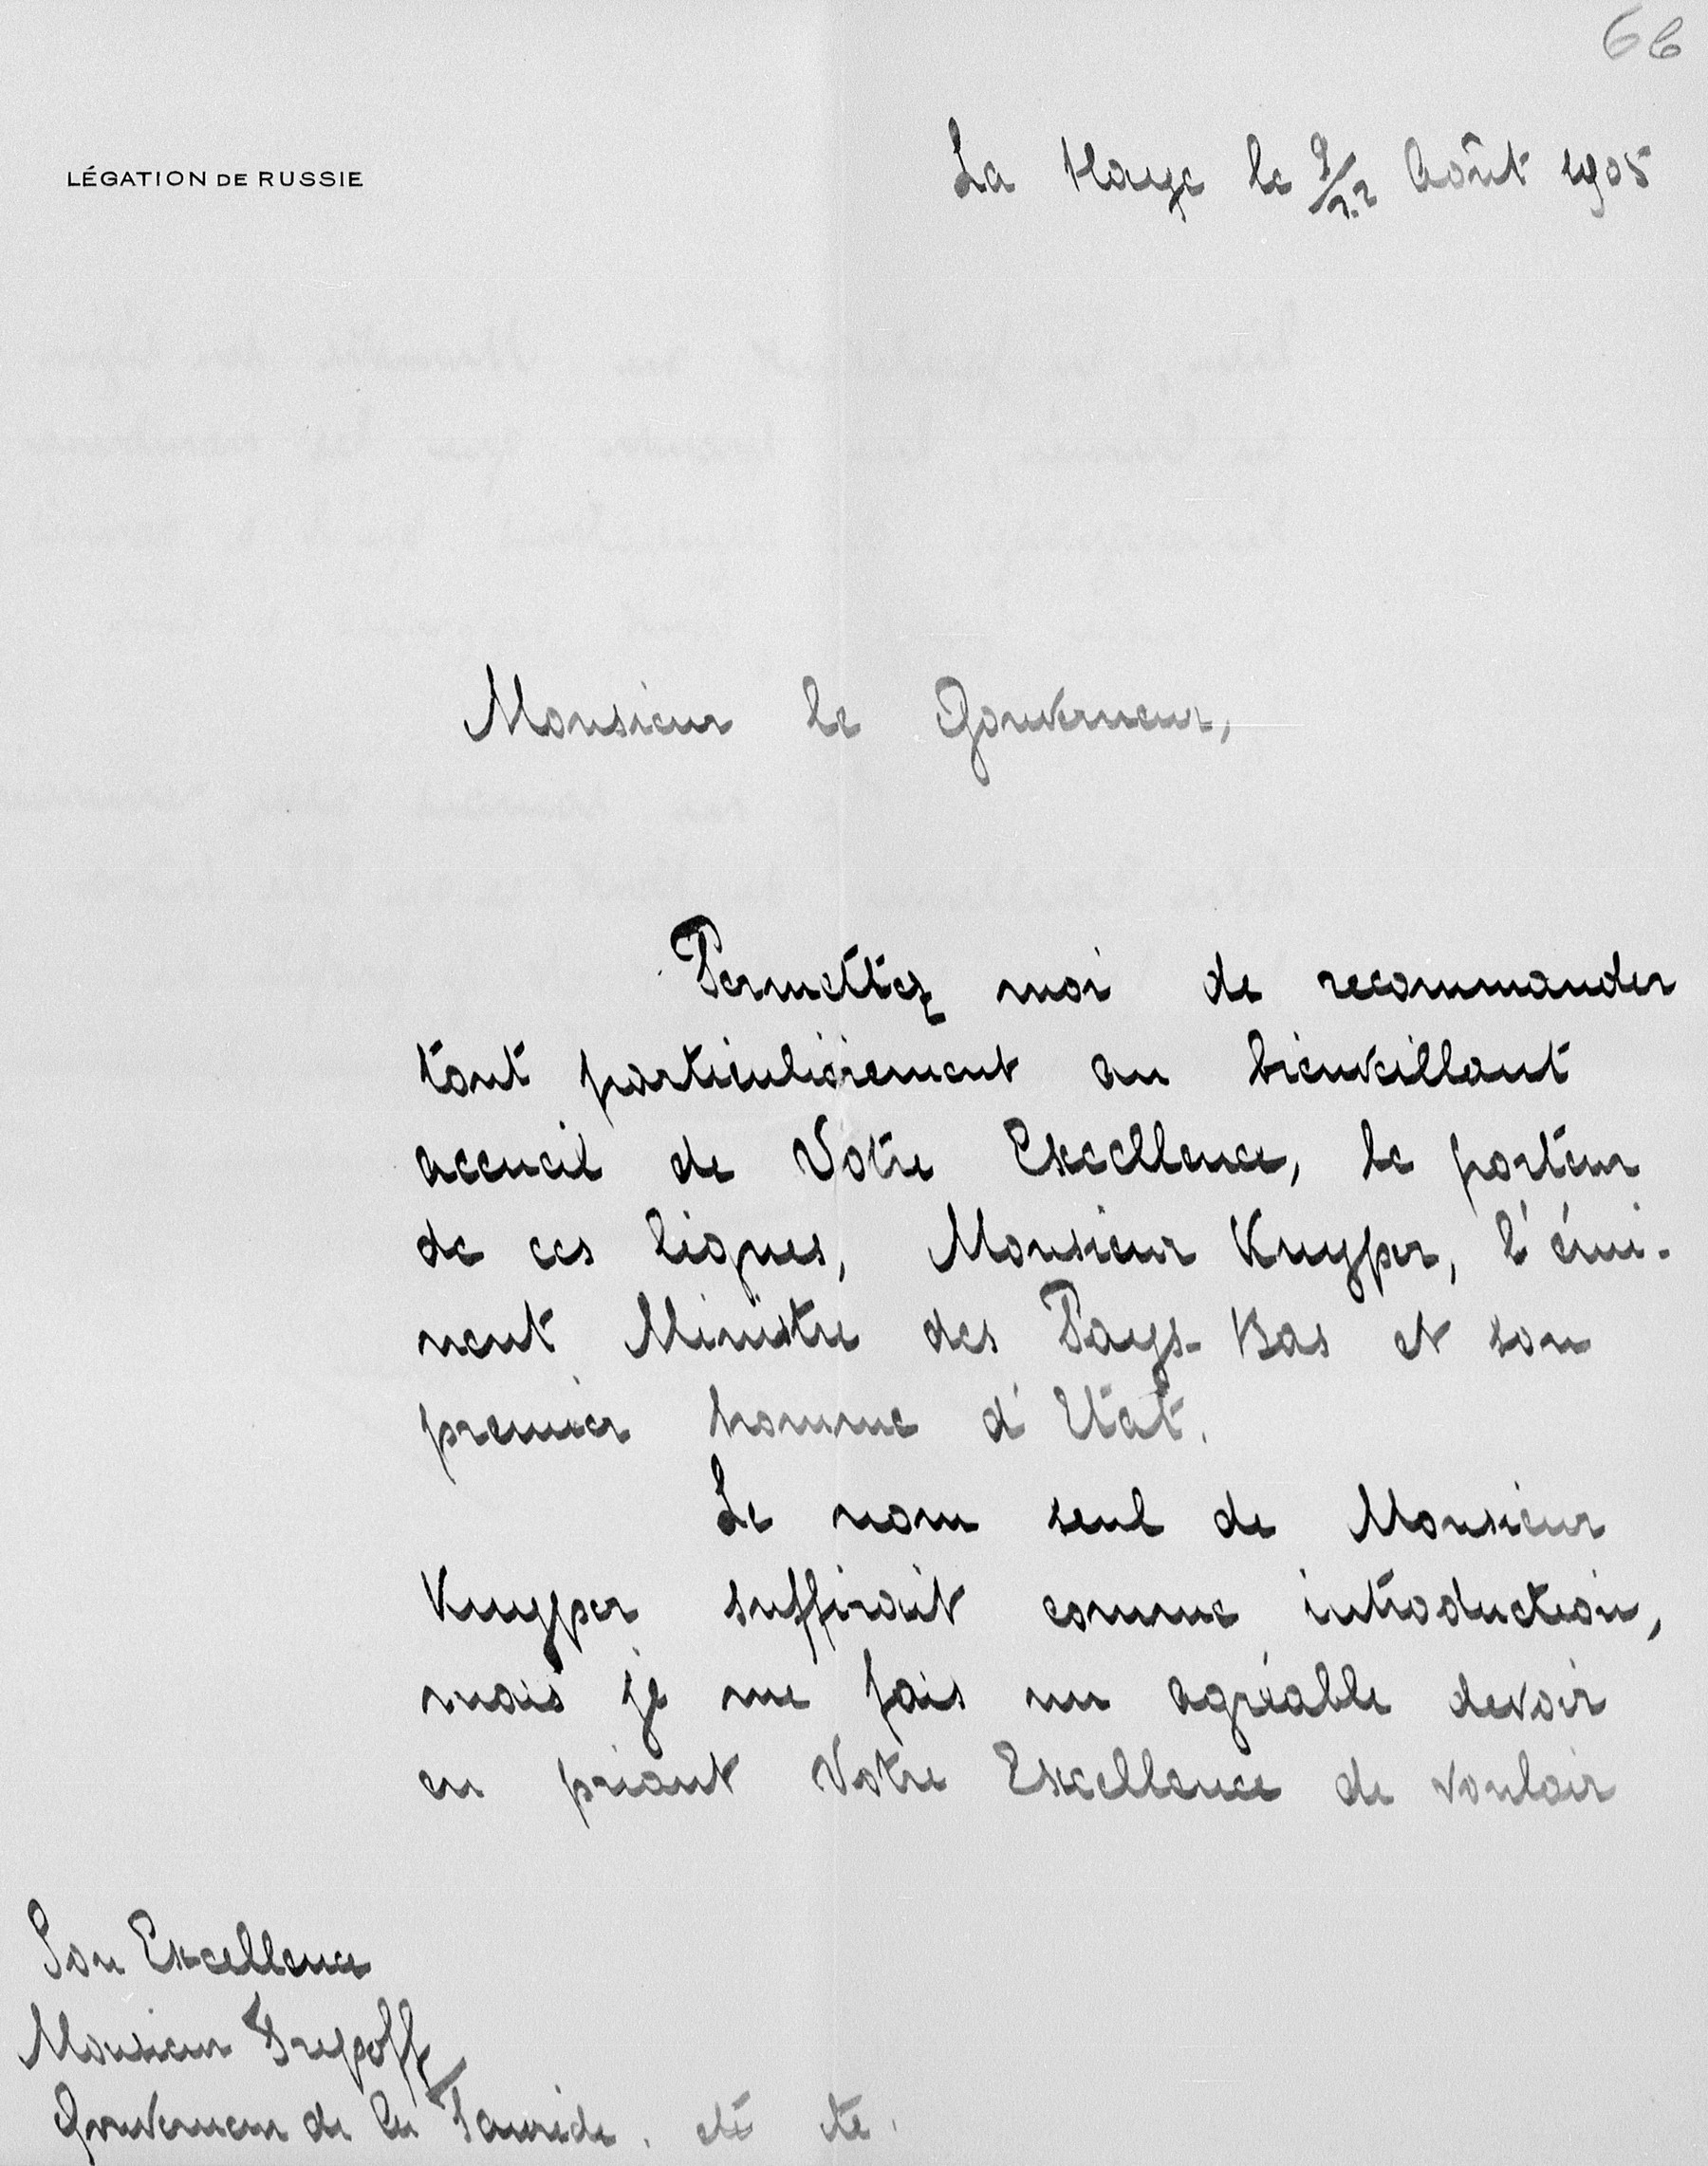 66
LÉGATION DE RUSSIE
La Haye le 9/22 Août 1905
Monsieur le Gouverneur,
Permettez moi de recommander
tout particulièrement au bienveillant
accueil de Votre Excellence, le porteur
de ces lignes, Monsieur Kuyper, l'émi-
nent Ministre des Pays-Bas et son
premier homme d'Etat.
Le nom seul de Monsieur
Kuyper suffirait comme introduction,
mais je me fais un agréable devoir
en priant Votre Excellence de vouloir
Son Excellence
Monsieur Trepoff
Gouverneur de la Tauride. etc etc.